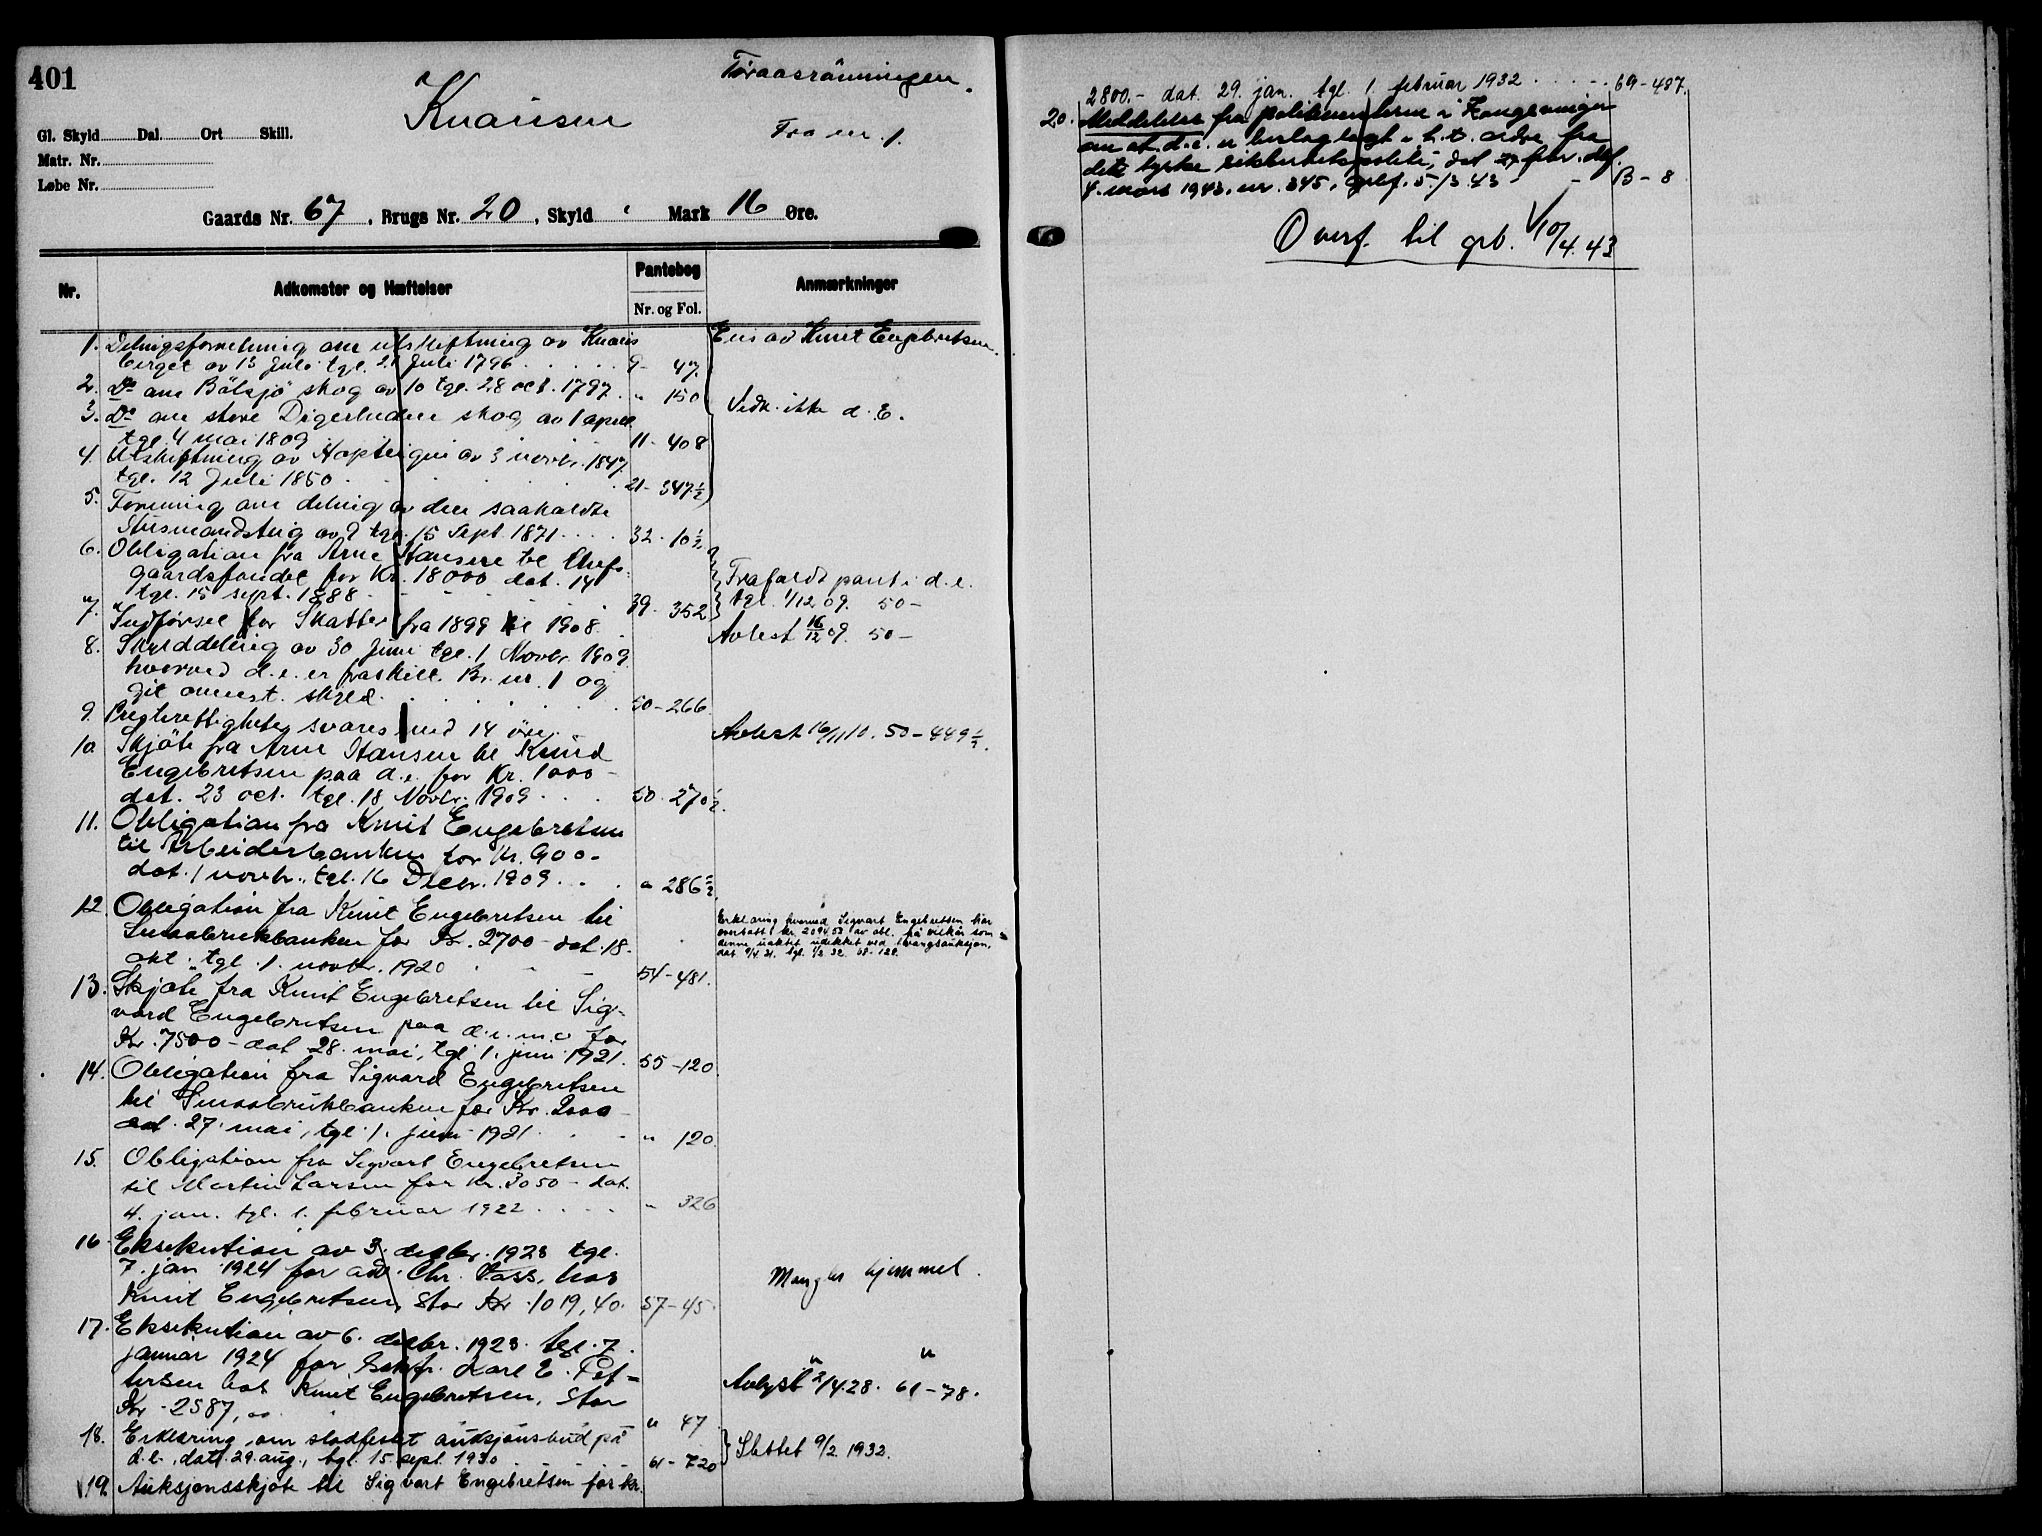 401
Knausen
Furaasrønningen.
Fra nr. 1.
Gl. Skyld Dal. Ort Skill.
Matr. Nr.
Løbe Nr.
Gaards Nr. 67, Brugs Nr. 20, Skyld Mark 16 Øre.
Nr.
Adkomster og Hæftelser
Pantebog
Nr. og Fol.
Anmærkninger
1. Delingsforretning om utskiftning av Knaus
berget av 13 Juli tgl. 21 Juli 1796 9- 47.
Eies av Knut Engebretsen.
2. Do om Bölsjö skog av 10 tgl. 28 oct. 1797. " 150
3. Do om store Digerluden skog av 1 april
tgl. 4 mai 1809 11- 408
Vedk. ikke d. E.
4. Utskiftning av av 3 novbr. 1847.
tgl. 12 Juli 1850 21- 347½
5. Forening om deling av den saakaldte
av 9 tgl. 15 Sept. 1871 32- 10½
6. Obligation fra Arne Hansen til Opl.
gaardsfondet for Kr. 18000 dat. 14
tgl. 15 sept. 1888 39- 352
Frafaldt pant i d. e.
tgl. 1/12 09. 50-
7. Indførsel for Skatter fra 1899 til 1908.
Avlest 16/12 09. 50-
8. Skylddeling av 30 Juni tgl. 1 Novbr. 1909
hvorved d. e. er fraskilt Br. nr. 1 og
git anmst. skyld. 50-266.
9. svares med 14 öre
Avlest 16/11 10. 50-449½.
10 Skjøte fra Arne Hansen til Knud
Engebretsen paa d. e. for Kr. 1000-
dat. 23 oct. tgl. 18 Novbr. 1909 50-270½.
11. Obligation fra Knut Engebretsen
til Arbeiderbanken for Kr. 900-
dat. 1 novbr. tgl. 16 Decbr. 1909 " 286½
12. Obligation fra Knut Engebretsen til
Smaabrukbanken for Kr. 2700- dat. 18.
okt. tgl. 1. novbr. 1920 54-481.
Erklæring hvorved Sigvart Engebretsen har
overtatt kr. 2094.53 av obl. på vilkår som
denne inaktet udekket ved tvangsauksjon,
dat. 9/4 31. tgl. 1/2 32 68-128.
13. Skjøte fra Knut Engebretsen til Sig-
vard Engebretsen paa d. e. m. o for
Kr. 7500- dat 28. mai, tgl. 1. juni 1921. 55-120.
14. Obligation fra Sigvard Engebretsen
til Smaabrukbanken for Kr. 2000-
dat. 27. mai, tgl. 1. juni 1921. " 120.
15. Obligation fra Sigvart Engebretsen
til Martin Larsen for Kr. 3050- dat.
4. jan. tgl. 1. februar 1922 " 326
16. Eksekution av 3. decbr. 1923 tgl.
7. jan 1924 for adv. Chr. Vass, hos
Knut Engebretsen, stor Kr. 1019,40. 57-45.
Mangler hjemmel.
17. Eksekution av 6. decbr. 1923. tgl. 7.
januar 1924 for Karl E. Pet-
tersen hos Knut Engebretsen, stor
Kr. 2587,00 " 47
" "
Avlyst 2/4.28. 61-78.
18. Erklæring om stadfestet auksjonsbud på
d. e., dat. 29. aug., tgl. 15. sept. 1930 61-720
Slettet 9/2. 1932.
19. Auksjonsskjøte til Sigvart Engebretsen for kr.
2800.- dat. 29. jan. tgl. 1. februar 1932 69-487.
20. Meddelelse fra politimesteren i Kongsvinger
om at d. e. er beslaglagt i h. t. ordre fra
det tyske sikkerhetspoliti, dat. febr. dbf.
4. mars 1943. nr. 345. tgl. 5/3 43 B-8
Overf. til grb. V 10/4.43